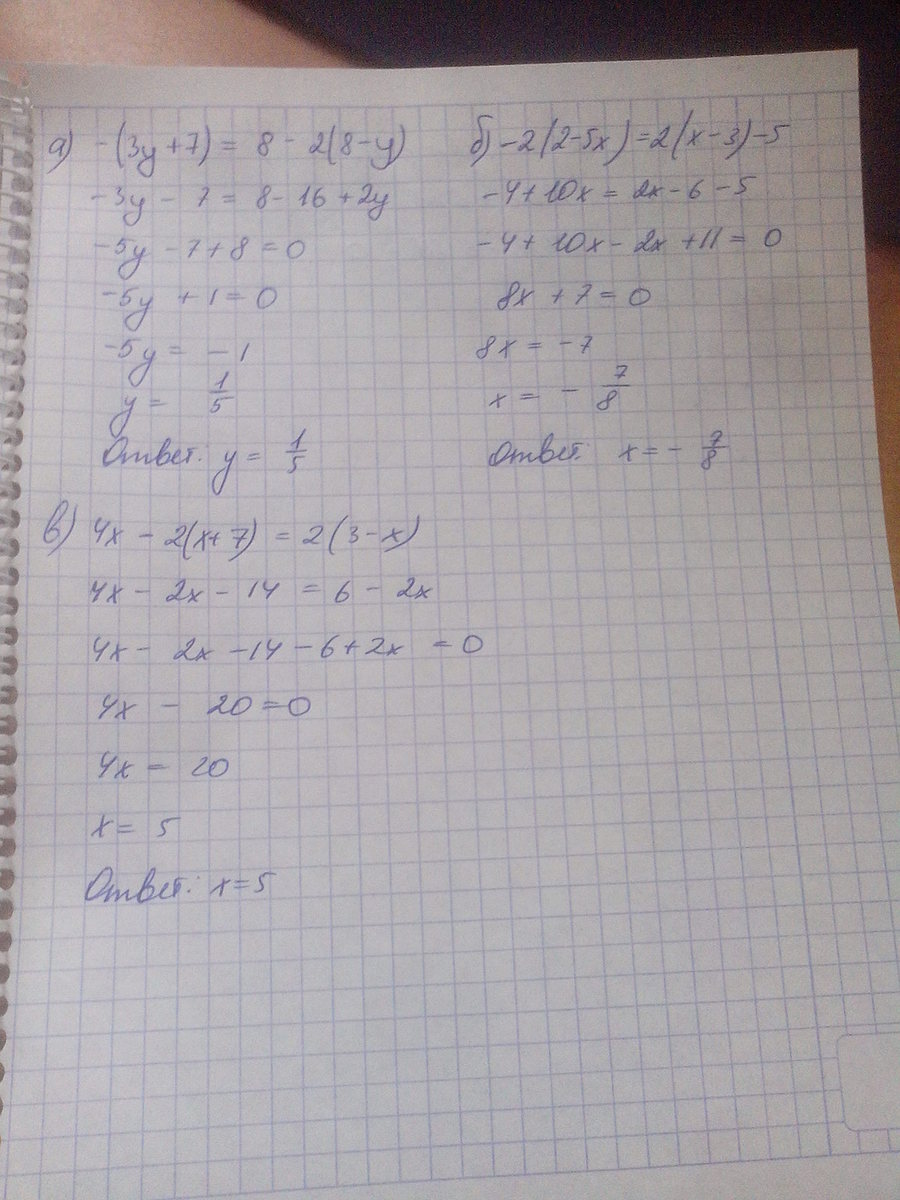 а) -(3y+7) = 8 - 2(8-y)
-3y - 7 = 8 - 16 + 2y
-5y - 7 + 8 = 0
-5y + 1 = 0
-5y = -1
y = 1/5
Ответ: y = 1/5
б) -2(2-5x) = 2(x-3)-5
-4+10x = 2x - 6 - 5
-4 + 10x - 2x + 11 = 0
8x + 7 = 0
8x = -7
x = - 7/8
Ответ: x = - 7/8
в) 4x - 2(x+7) = 2(3-x)
4x - 2x - 14 = 6 - 2x
4x - 2x - 14 - 6 + 2x = 0
4x - 20 = 0
4x = 20
x = 5
Ответ: x = 5